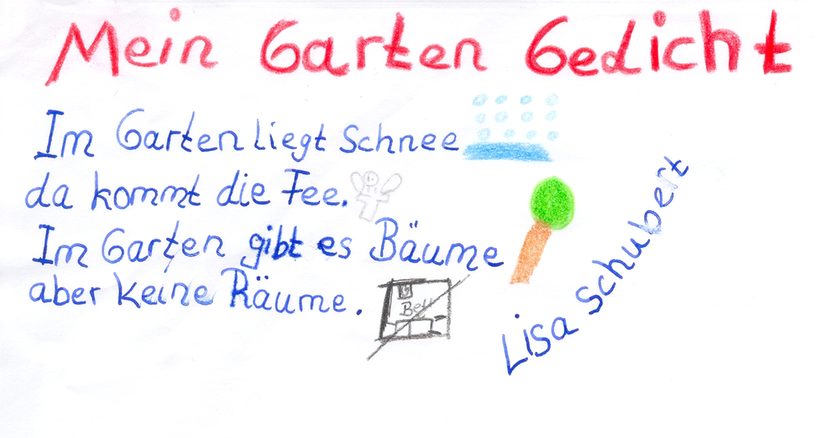 Mein Garten Gedicht
Im Garten liegt Schnee
da kommt die Fee.
Im Garten gibt es Bäume
aber keine Räume.
Lisa Schubert